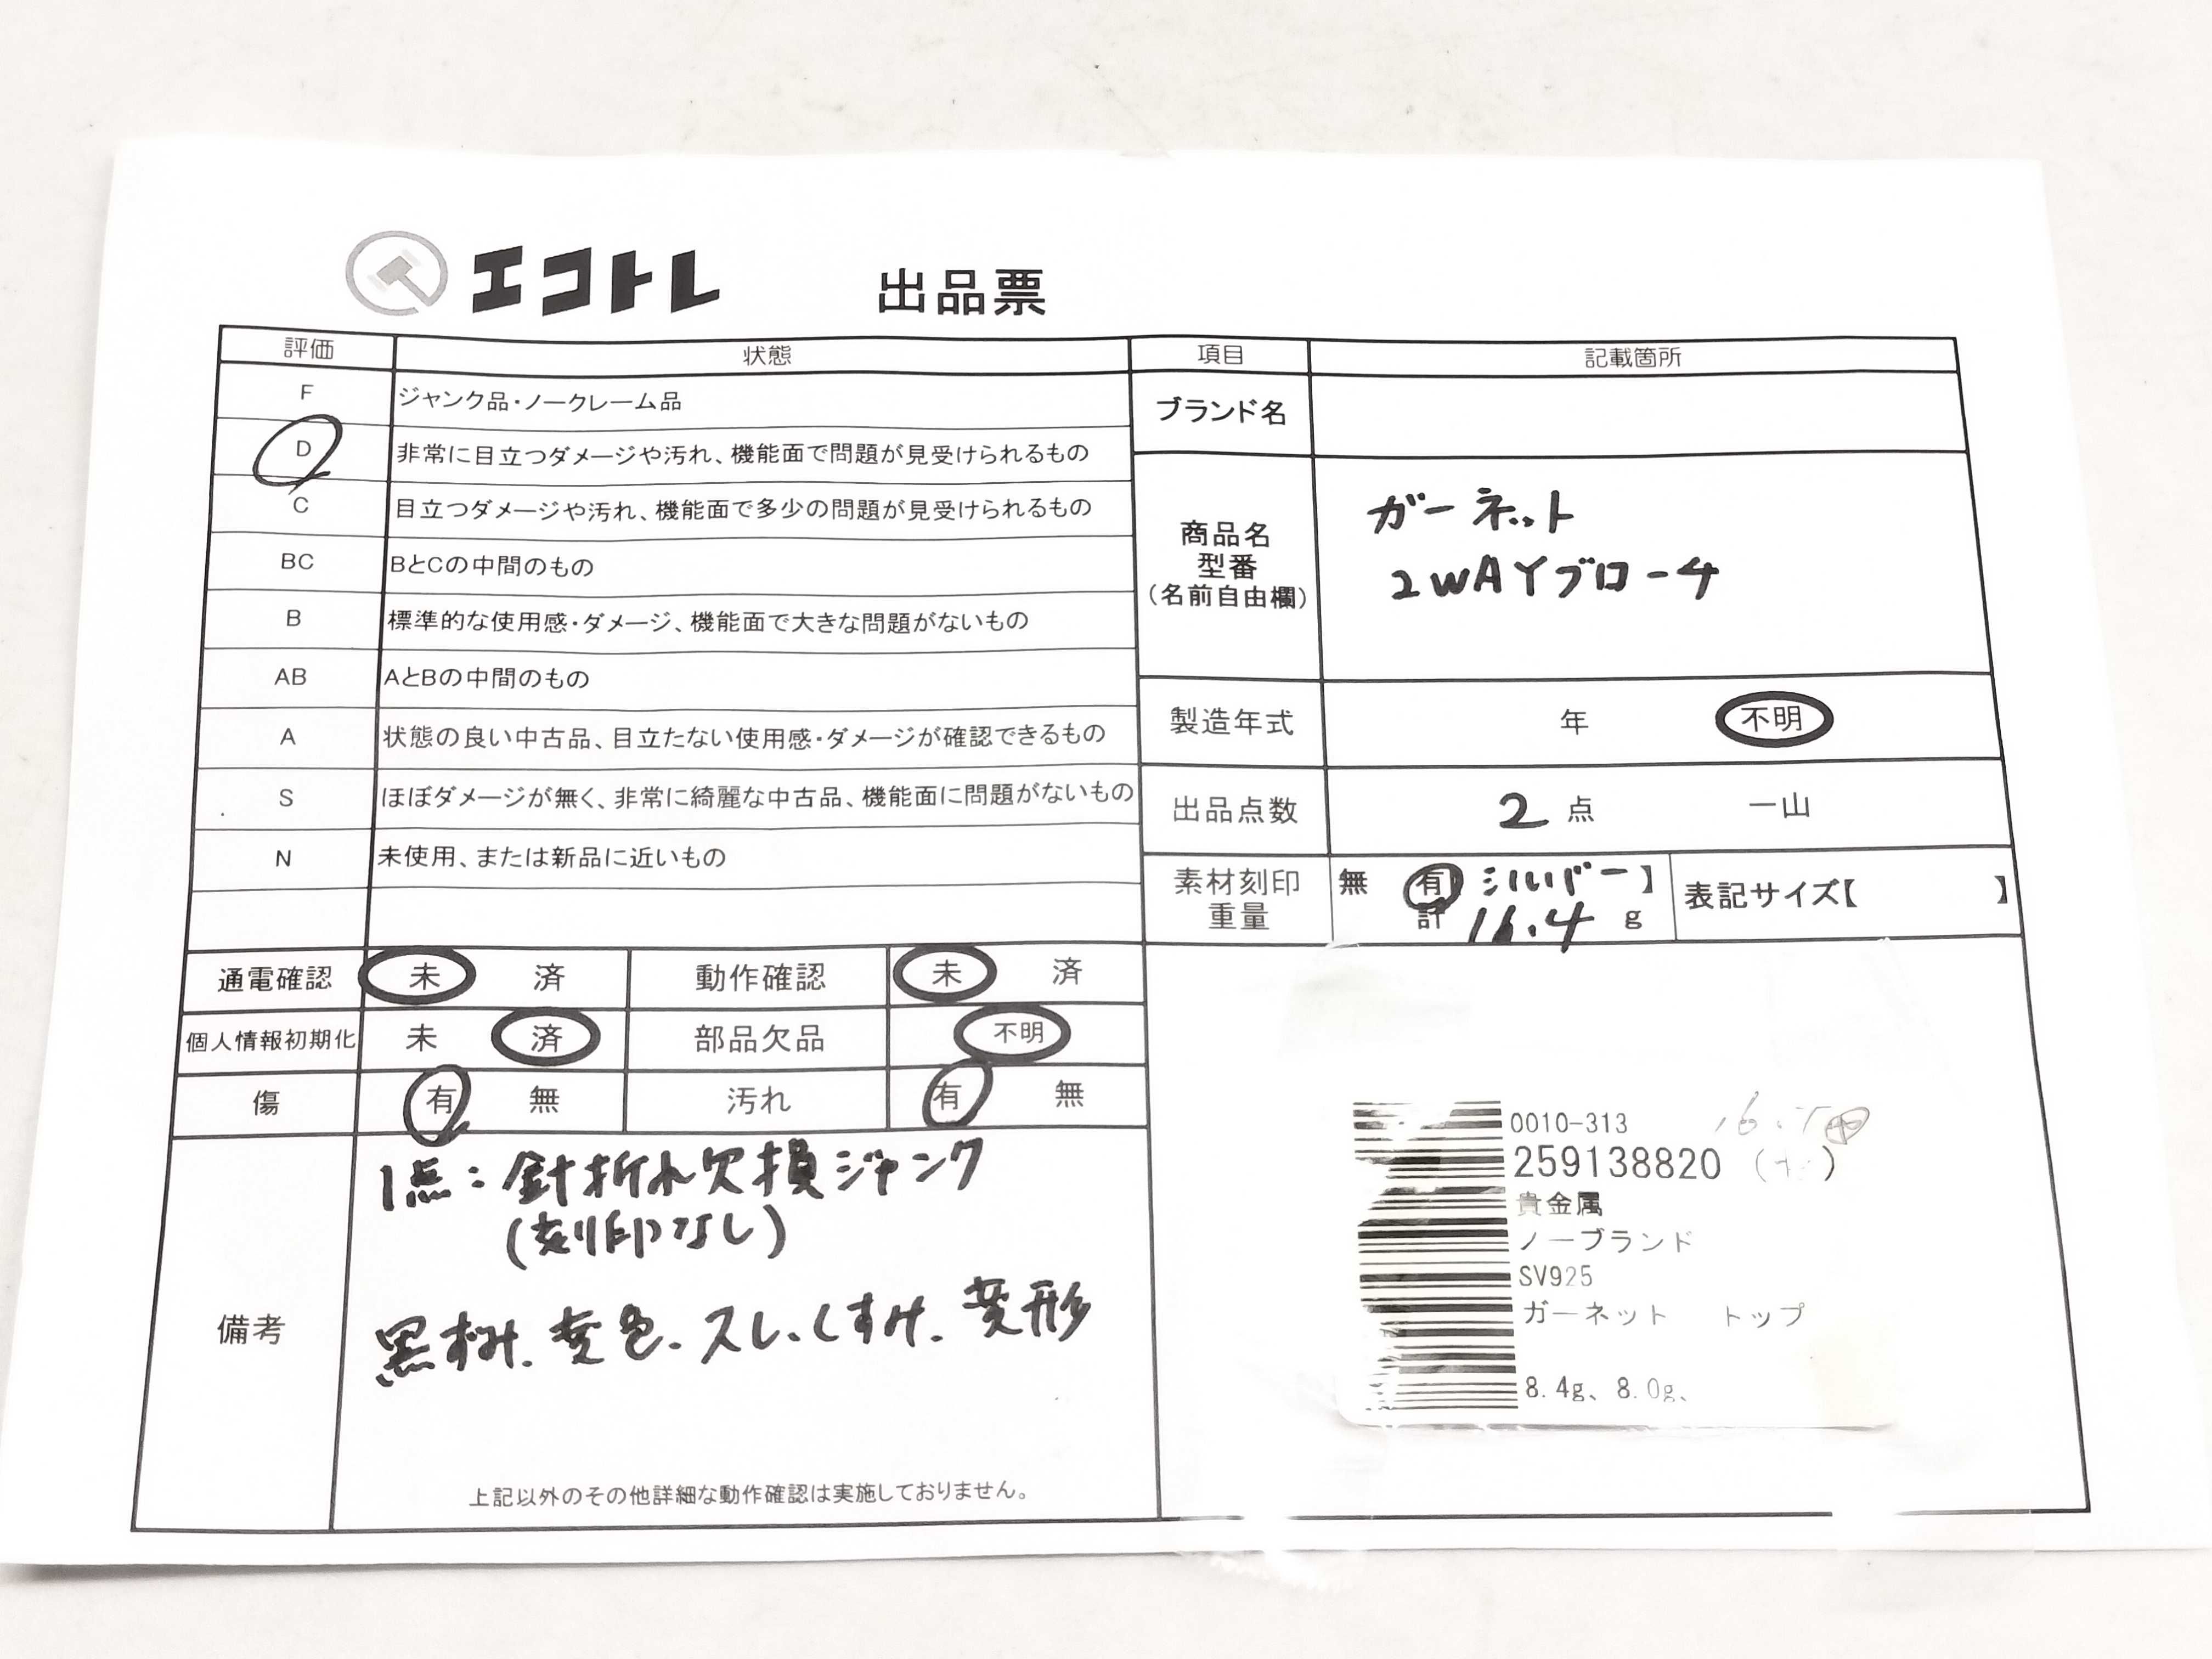 エコトレ 出品票
評価 状態 項目 記載箇所
F ジャンク品・ノークレーム品
D 非常に目立つダメージや汚れ、機能面で問題が見受けられるもの
C 目立つダメージや汚れ、機能面で多少の問題が見受けられるもの
BC BとCの中間のもの
B 標準的な使用感・ダメージ、機能面で大きな問題がないもの
AB AとBの中間のもの
A 状態の良い中古品、目立たない使用感・ダメージが確認できるもの
S ほぼダメージが無く、非常に綺麗な中古品、機能面に問題がないもの
N 未使用、または新品に近いもの
ブランド名
商品名
型番
(名前自由欄)
ガーネット
2WAYブローチ
製造年式 年 不明
出品点数 2 点 一山
素材刻印 無 有 シルバー】
重量 計 16.4 g
表記サイズ【 】
通電確認 未 済 動作確認 未 済
個人情報初期化 未 済 部品欠品 不明
傷 有 無 汚れ 有 無
備考
1点:針折れ欠損ジャンク
(刻印なし)
黒ずみ、変色、スレ、くすみ、変形
上記以外のその他詳細な動作確認は実施しておりません。
0010-313
259138820
貴金属
ノーブランド
SV925
ガーネット トップ
8.4g、8.0g、